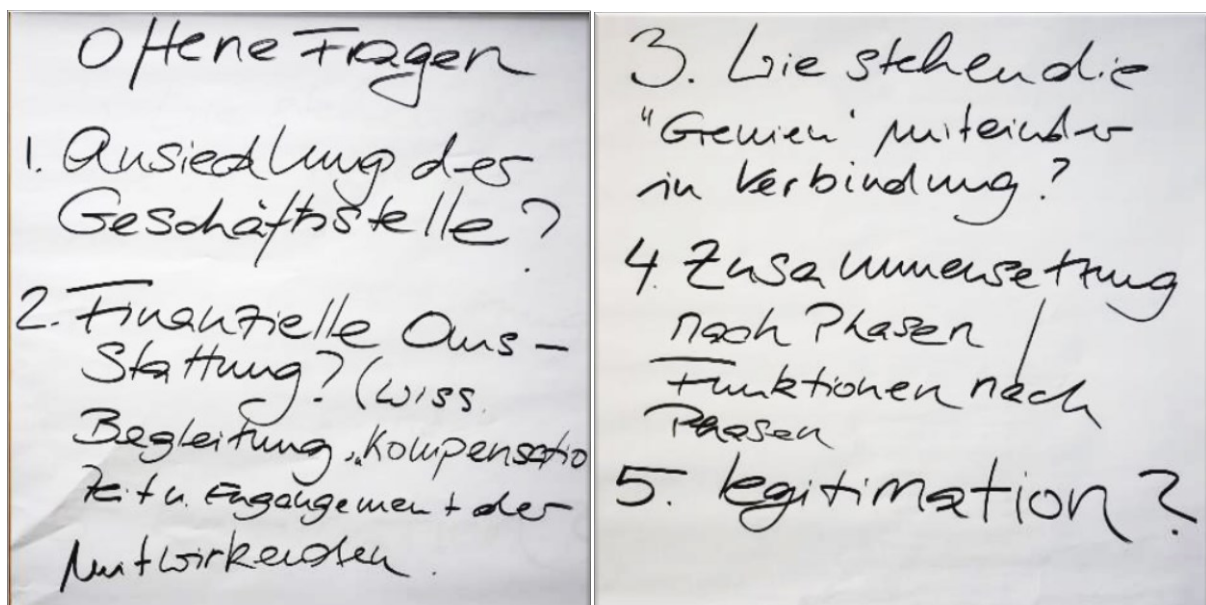 Offene Fragen
1. Ansiedlung der
Geschäftsstelle?
2. Finanzielle Aus-
stattung? (wiss.
Begleitung, "Kompensatio
Zeit u. Engangement der
Mitwirkenden.
3. Wie stehen die
"Gremien" miteinder
in Verbindung?
4. Zusammensetzung
nach Phasen
Funktionen nach
Phasen
5. Legitimation?